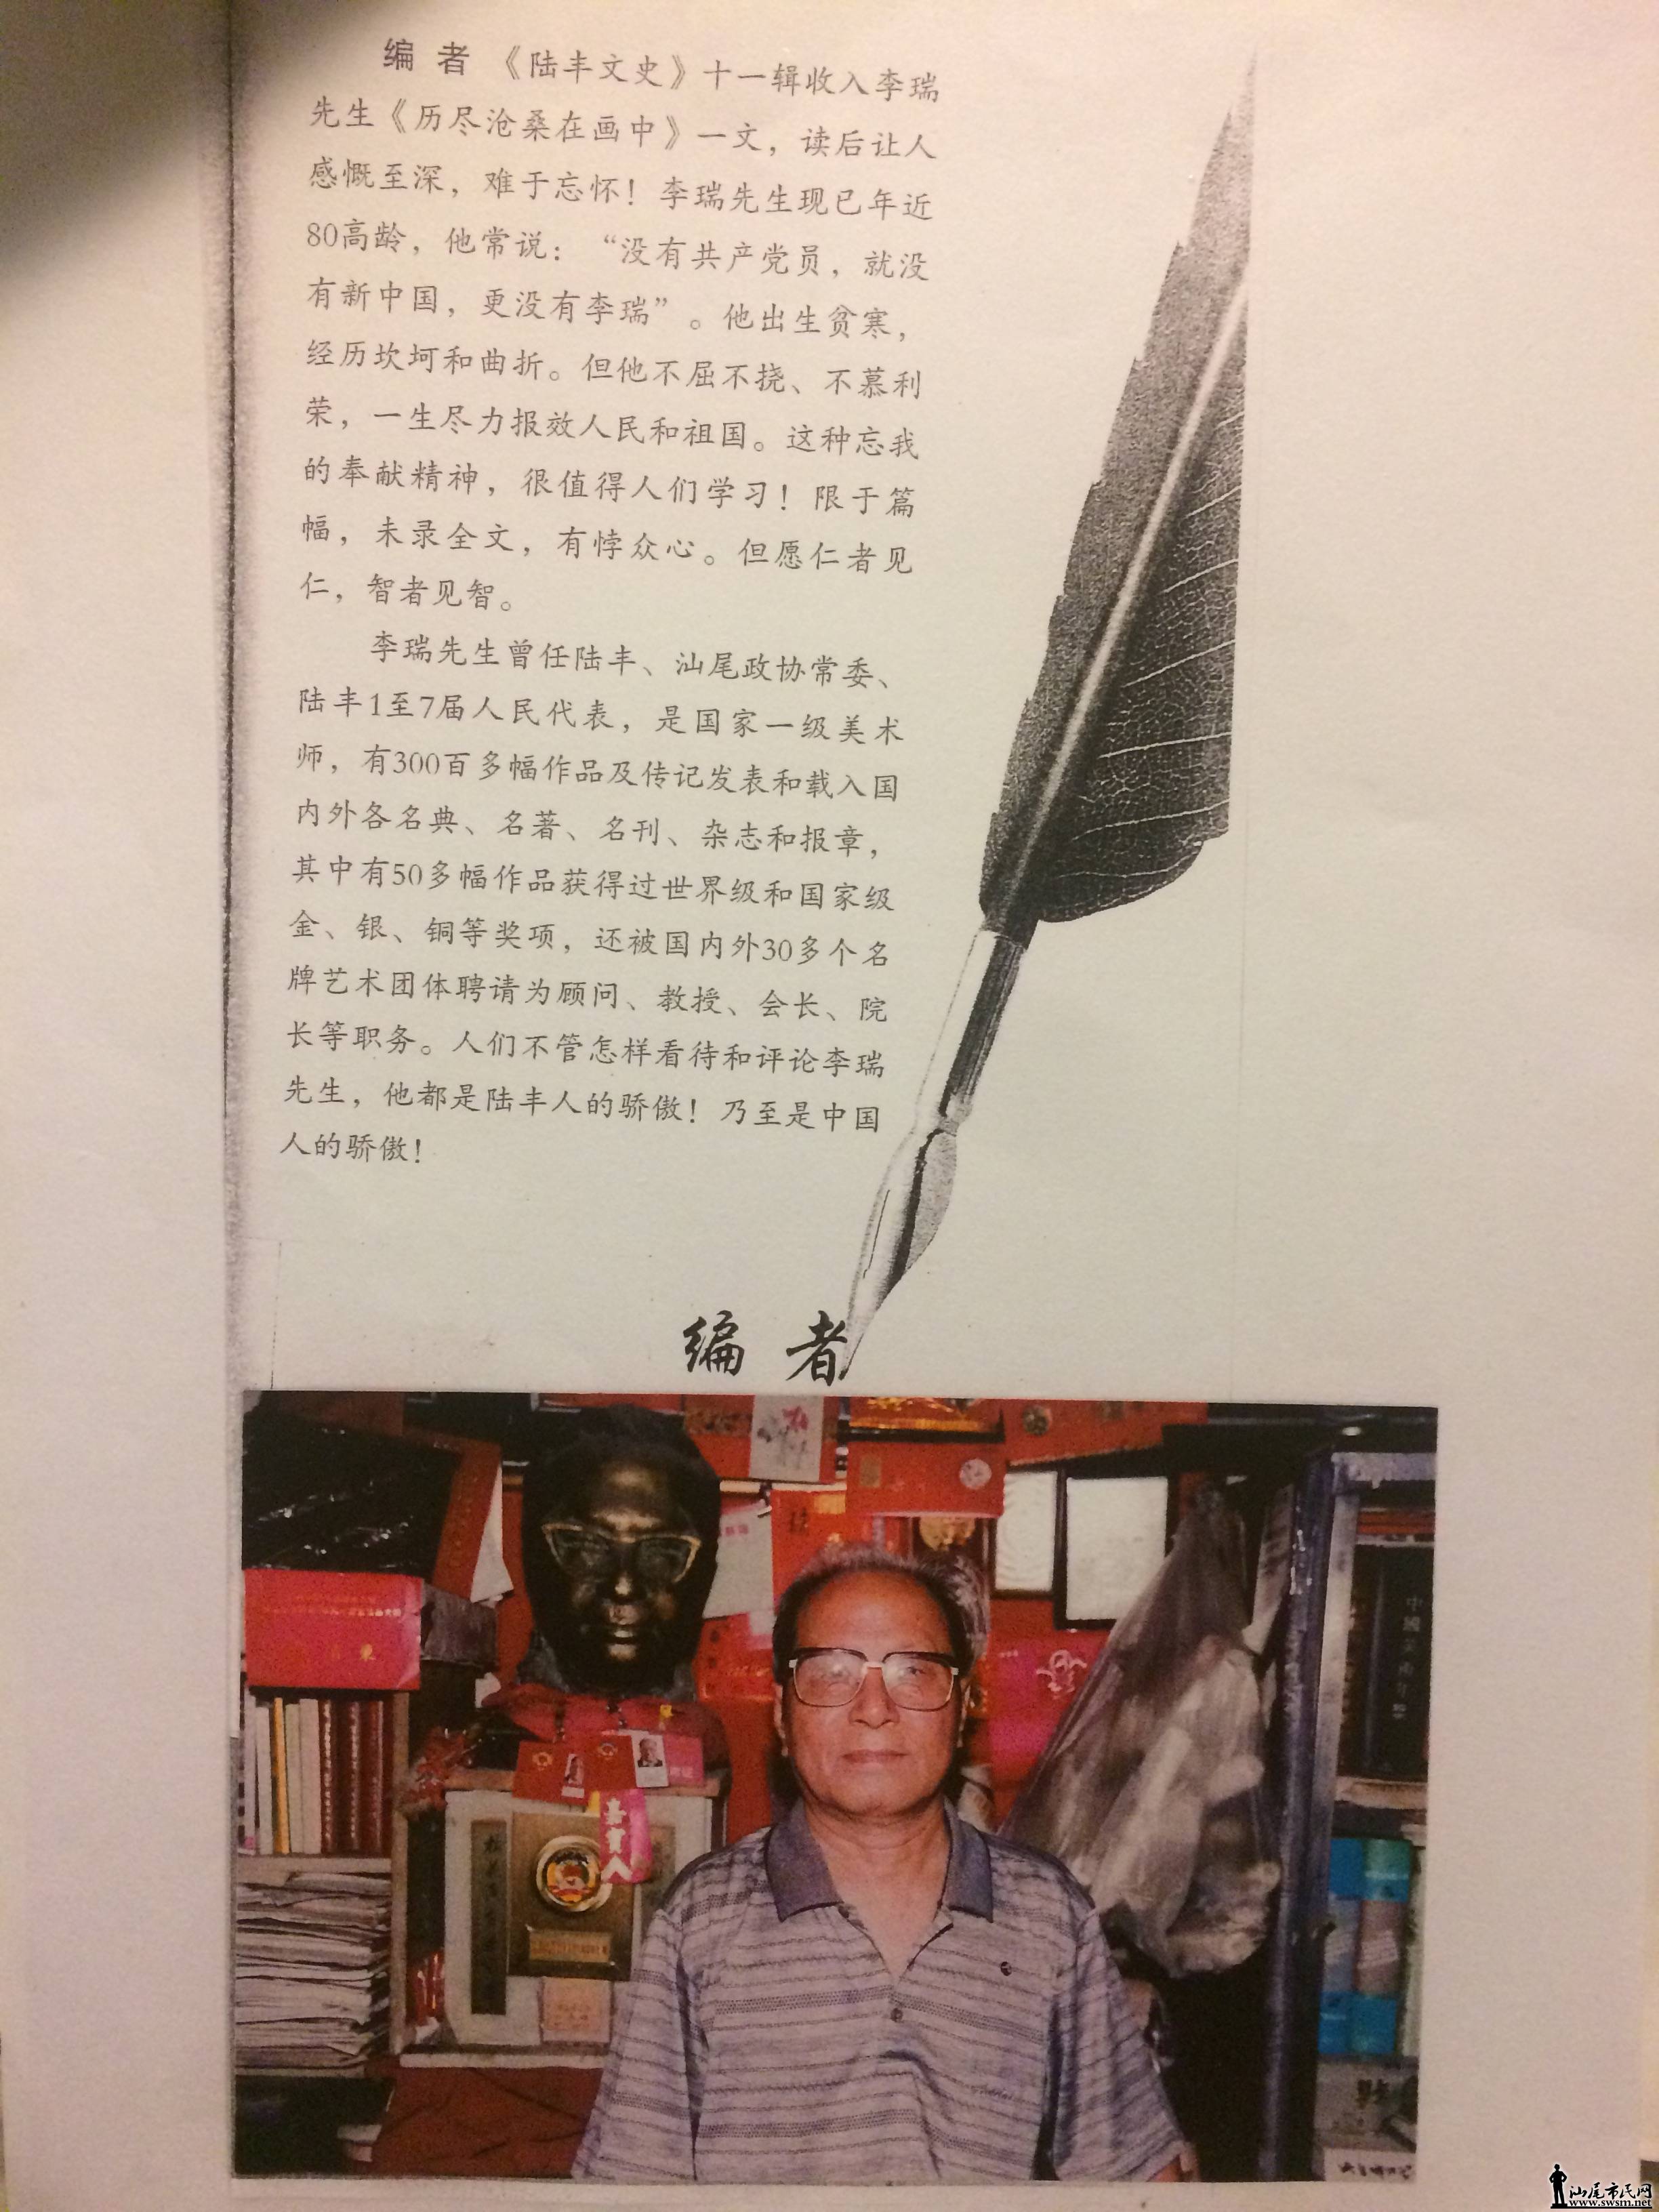 编 者 《陆丰文史》十一辑收入李瑞
先生《历尽沧桑在画中》一文，读后让人
感慨至深，难于忘怀！李瑞先生现已年近
80高龄，他常说：“没有共产党员，就没
有新中国，更没有李瑞”。他出生贫寒，
经历坎坷和曲折。但他不屈不挠、不慕利
荣，一生尽力报效人民和祖国。这种忘我
的奉献精神，很值得人们学习！限于篇
幅，未录全文，有悖众心。但愿仁者见
仁，智者见智。
李瑞先生曾任陆丰、汕尾政协常委、
陆丰1至7届人民代表，是国家一级美术
师，有300百多幅作品及传记发表和载入国
内外各名典、名著、名刊、杂志和报章，
其中有50多幅作品获得过世界级和国家级
金、银、铜等奖项，还被国内外30多个名
牌艺术团体聘请为顾问、教授、会长、院
长等职务。人们不管怎样看待和评论李瑞
先生，他都是陆丰人的骄傲！乃至是中国
人的骄傲！
编 者
嘉宾
汕尾市民网
www.swsm.net